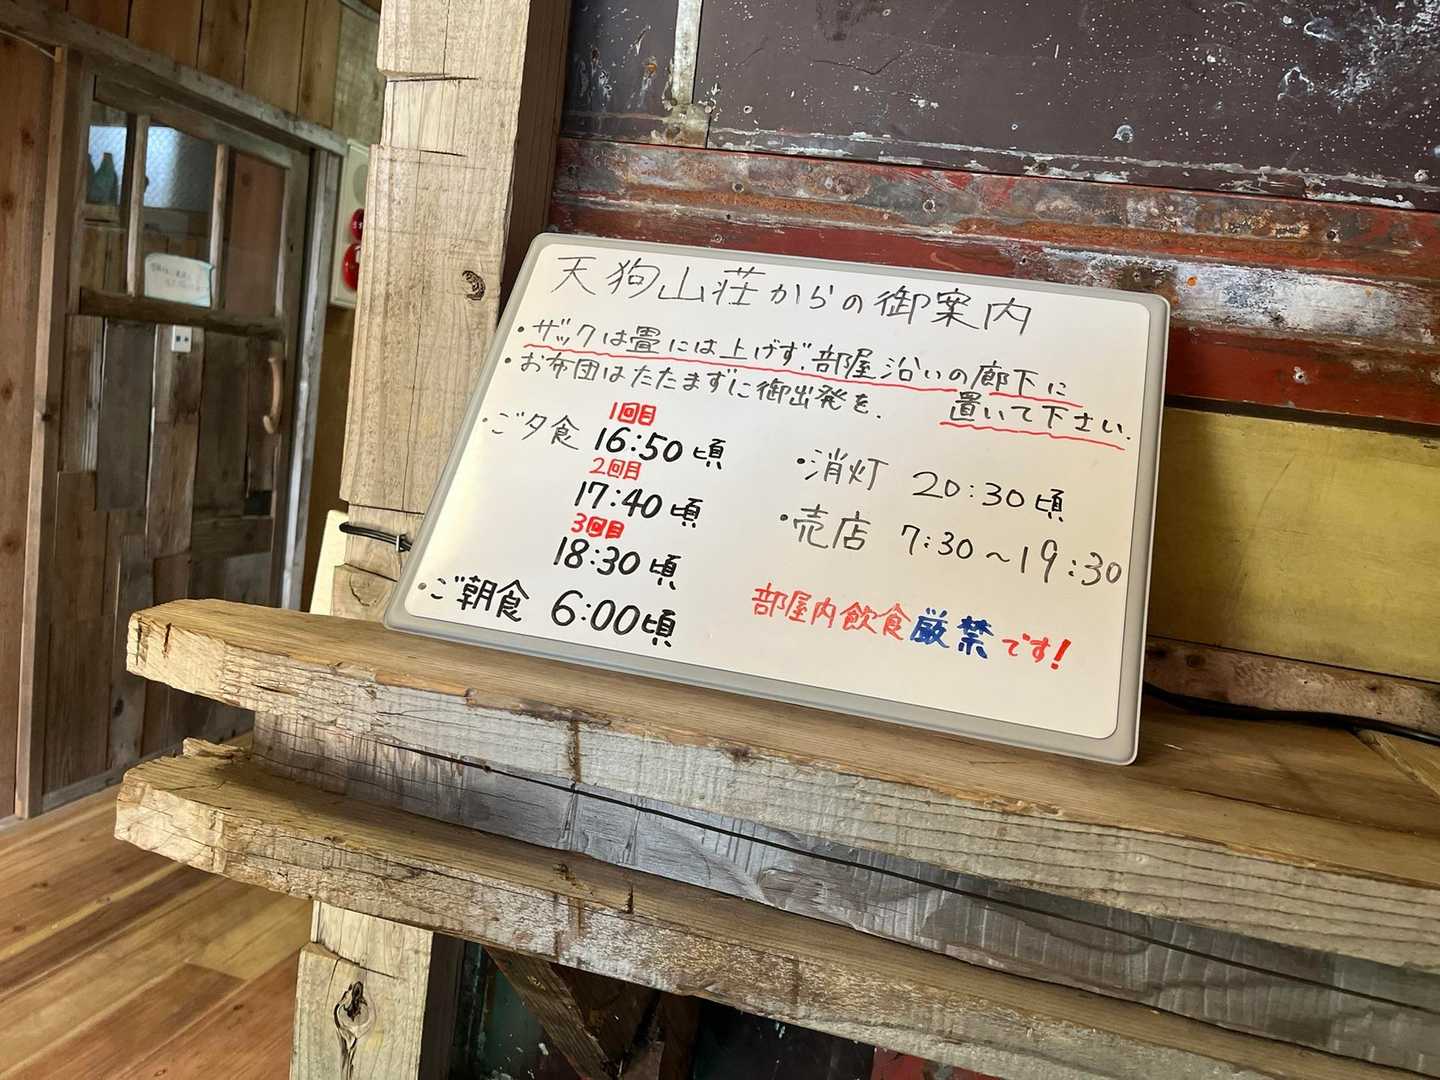 天狗山荘からの御案内
・ザックは畳には上げず、部屋沿いの廊下に
置いて下さい.
・お布団はたたまずに御出発を.
・ご夕食
1回目
16:50頃
2回目
17:40頃
3回目
18:30頃
・ご朝食 6:00頃
・消灯 20:30頃
・売店 7:30〜19:30
部屋内飲食厳禁です!